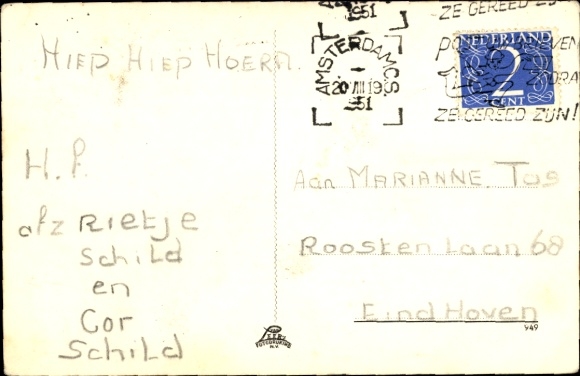 HIEP HIEP HOERA.
H. P.
afz RIETJE
SCHILD
en
COR
SCHILD
1951
AMSTERDAM C.S.
20 VIII 19
1951
ZE GEREED
ZE GEREED ZIJN!
NEDERLAND
2
CENT
Aan MARIANNE TOS
ROOSTEN LAAN 68
EINDHOVEN
949